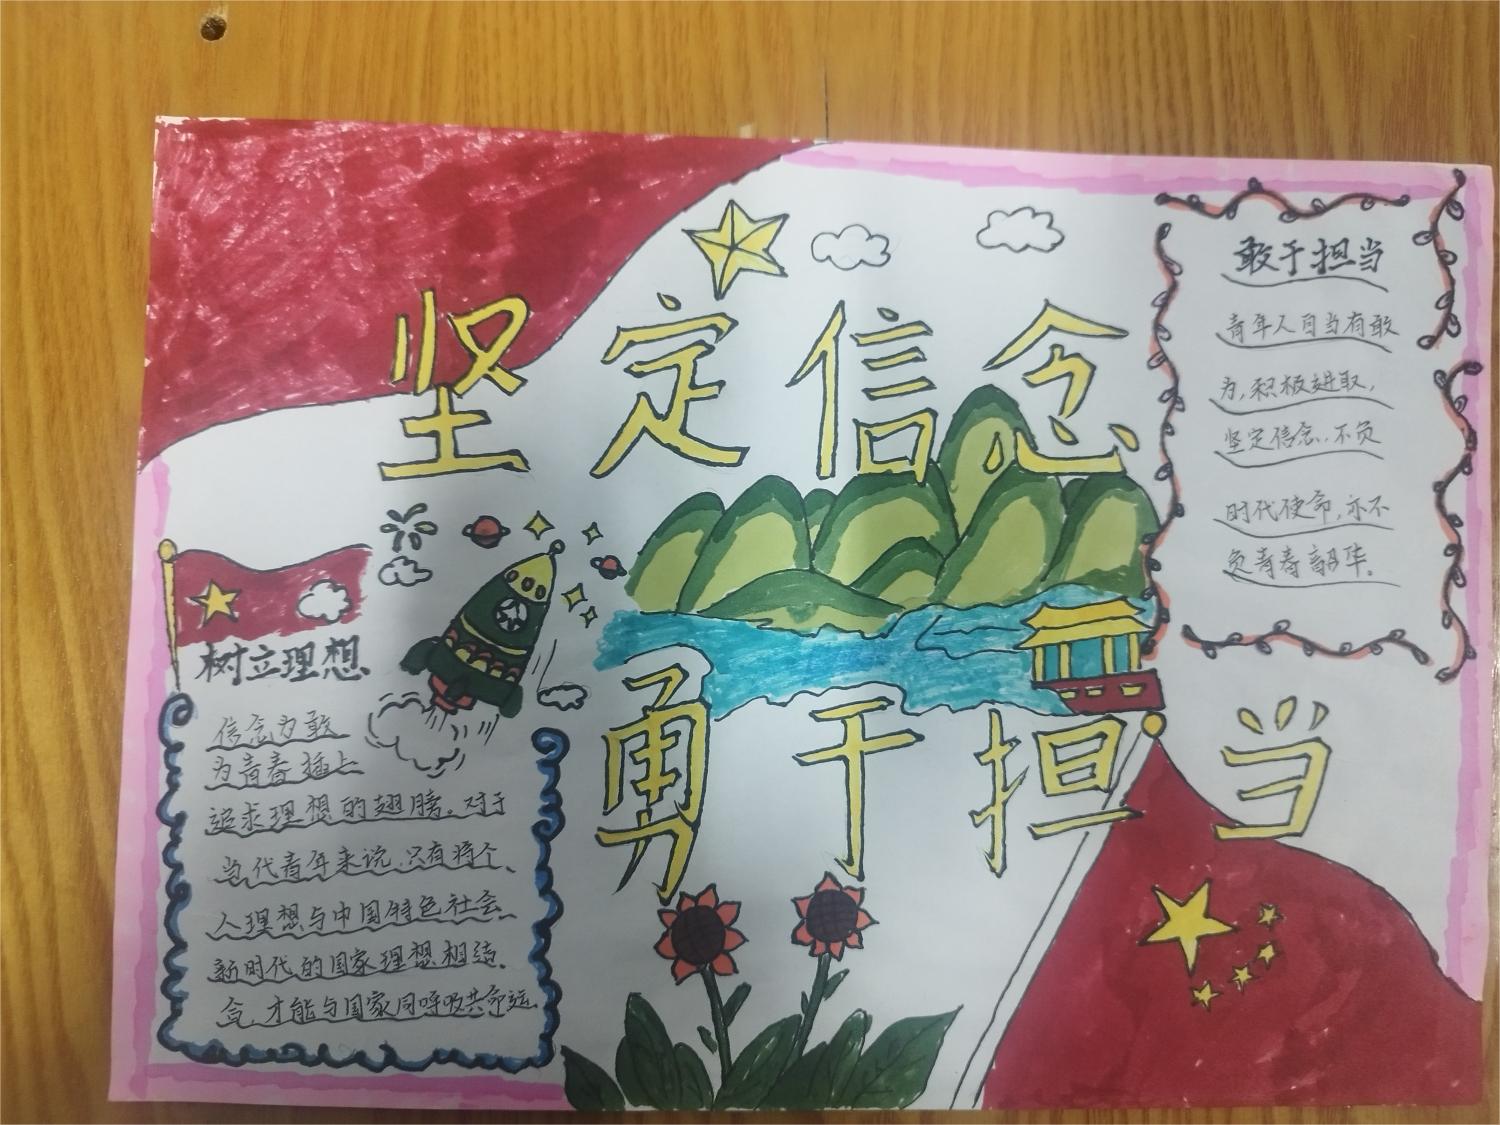 坚定信念
勇于担当
敢于担当
青年人自当有敢
为,积极进取,
坚定信念,不负
时代使命,亦不
负青春韶华。
树立理想
信念为敢
为青春插上
追求理想的翅膀。对于
当代青年来说,只有将个
人理想与中国特色社会
新时代的国家理想相结
合,才能与国家同呼吸共命运